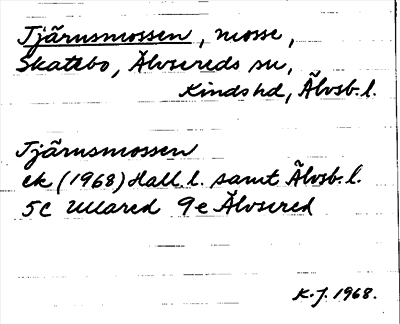 Tjärnsmossen, mosse,
Skatebo, Älvsereds sn,
Kinds hd, Älvsb. l.
Tjärnsmossen
ek (1968) Hall. l. samt Älvsb. l.
5C Ullared 9e Älvsered
K.J. 1968.